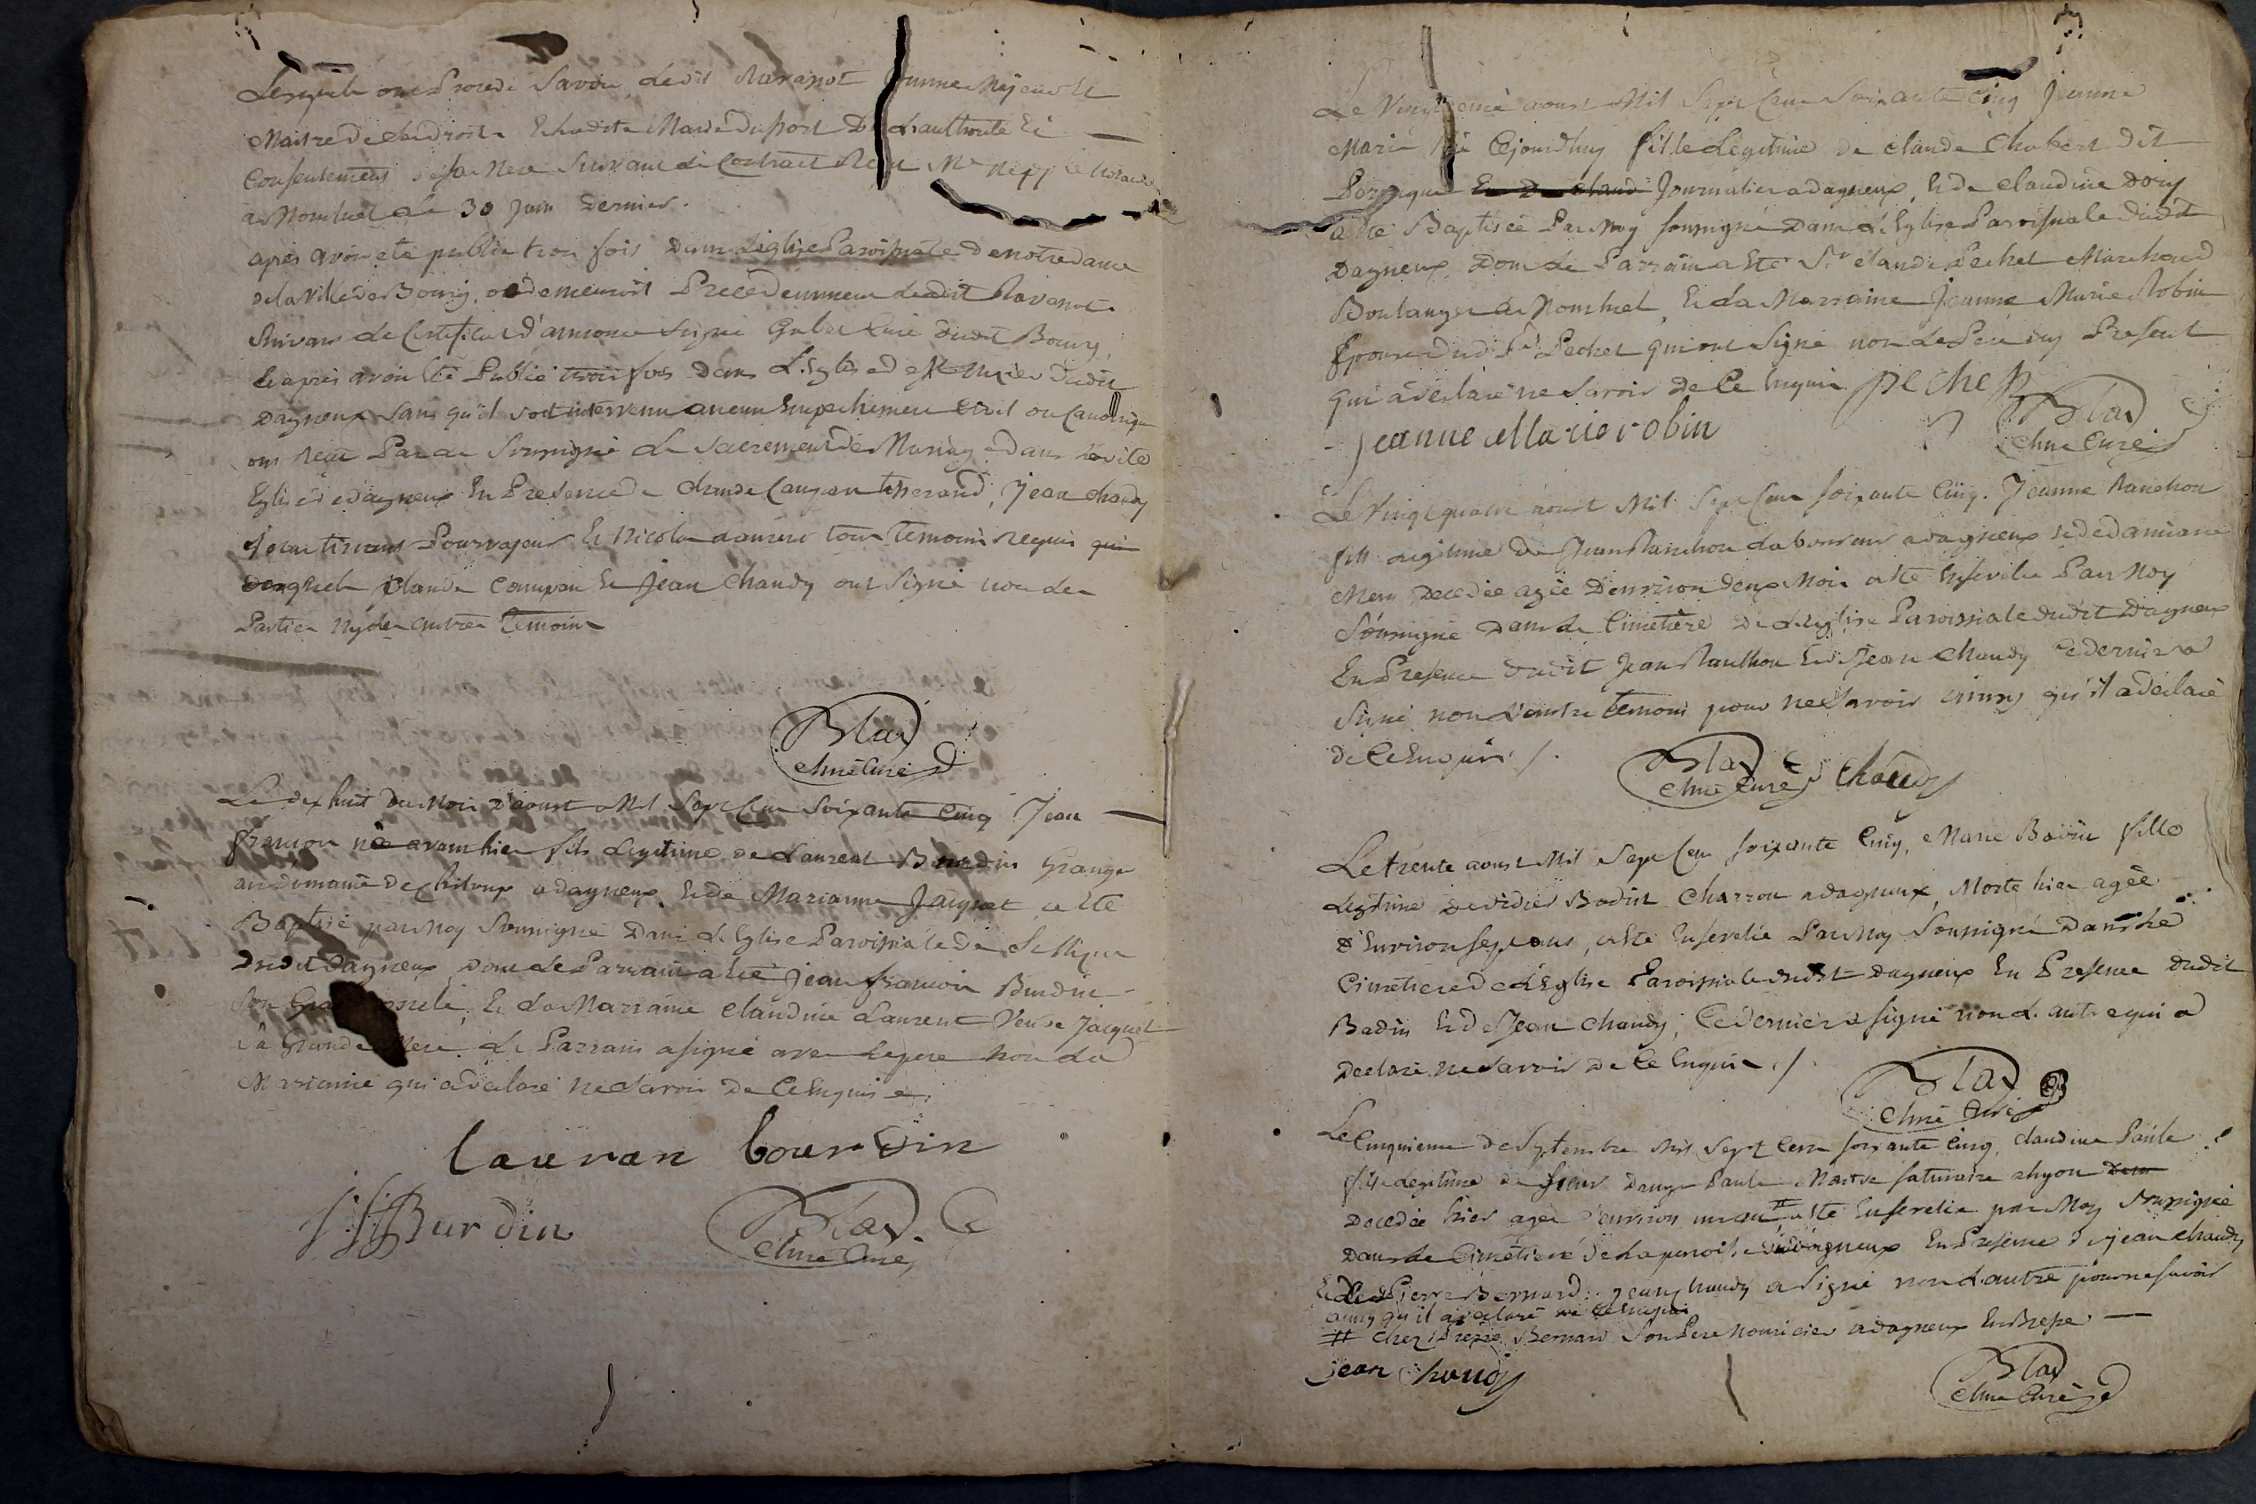 Lesquels ont Procedé Savoir Ledit Ravanot comme Majeur Et
Maitre de ses droits Et ladite Marie Duport De L'authorité Et
Consentement de sa Mere Suivant Le Contract Reçu Me Notaire
a Monluel Le 30 Juin Dernier.
après avoir été publié trois fois Dans L'Eglise Paroissiale de notre dame
De la Ville de Bourg, ou demeuroit Precedemment Ledit Ravanot
Suivant Le Certificat d'annonce Signé Curé dudit Bourg,
Et après avoir été Publié trois fois Dans L'Eglise de dudit
Dagneux Sans qu'il soit intervenu aucun Empechement Civil ou Canonique
ont Reçu Par Le Soussigné Le Sacrement de Mariage dans
Eglise de dagneux En Presence de Claude Compan tisserand, Jean Chaudy
Et Nicolas tous Temoins requis qui
Desquels Claude Compan Et Jean Chaudy ont Signé non Les
Parties Ny Les autres Temoins
Blad
Chne Curé
Le dix huit du Mois d'aoust Mil Sept Cent Soixante Cinq Jean
françois né avanthier fils Legitime de Laurent Bourdin Granger
au domaine de a dagneux Et de Marianne Jacquet a Eté
Baptisé par Moy Soussigné Dans L'Eglise Paroissiale De
Dudit Dagneux Dont Le Parrain a Eté Jean françois Burdin
Son Et La Marraine Claudine Laurent Veuve Jacquet
Sa Grande Mere. Le Parrain a signé avec Le pere Non La
Marraine qui a declaré Ne Savoir De Ce Enquis.
lauran bourdin
JF Burdin
Blad.
Chne Curé
Le Vingt aoust Mil Sept Cent Soixante Cinq Jeanne
Marie Née Cejourdhuy fille Legitime de Claude Chabert Dit
Journalier a dagneux, Et de Claudine
a été Baptisée Par Moy Soussigné Dans L'Eglise Paroissiale Dudit
Dagneux, Dont Le Parrain a Eté Sr Claude Pechet Marchand
Boulanger a Monluel, Et La Marraine Jeanne Marie Robin
Epouse Dud. Sr Pechet qui ont Signé non Le Pere icy Present
qui a declaré ne Savoir De Ce Enquis Pechet
Blad
Jeanne Marie robin
Chne Curé
Le Vingt quatre aoust Mil Sept Cent Soixante Cinq. Jeanne Ranchon
fille Legitime de Jean Ranchon Laboureur a dagneux et de
Mery Decedée agée D'environ deux Mois a Eté Ensevelie Par Moy
Soussigné Dans Le Cimetiere De L'Eglise Paroissiale dudit Dagneux
En Presence dudit Jean Ranchon Et de Jean Chaudy Ce dernier a
Signé non L'autre Temoin pour ne Savoir ainsy qu'il a declaré
de Ce Enquis /.
Blad
Chne Curé Chaudy
Le trente aoust Mil Sept Cent Soixante Cinq, Marie Badin fille
Legitime De didier Badin Charron a dagneux, Morte hier agée
D'Environ Sept ans, a Eté Ensevelie Par Moy Soussigné Dans Le
Cimetiere de L'Eglise Paroissiale dudit Dagneux En Presence dudit
Badin Et de Jean Chaudy, Ce dernier a signé non L'autre qui a
Declaré Ne Savoir De Ce Enquis /.
Blad
Chne Curé
Le Cinquieme de Septembre Mil Sept Cent Soixante Cinq, Claudine Paule
fille Legitime de Sieur Paule Maitre a Lyon
Decedée hier agée d'environ un an # a Eté Ensevelie par Moy Soussigné
Dans Le Cimetiere De La paroisse de dagneux En Presence De jean Chaudy
Et De Pierre Bernard. Jean Chaudy a Signé non L'autre pour ne Savoir
ainsy qu'il a declaré de Ce Enquis
# Chez Pierre Bernard Son Pere Nouricier a dagneux En Bresse
jean Chaudy
Blad
Chne Curé